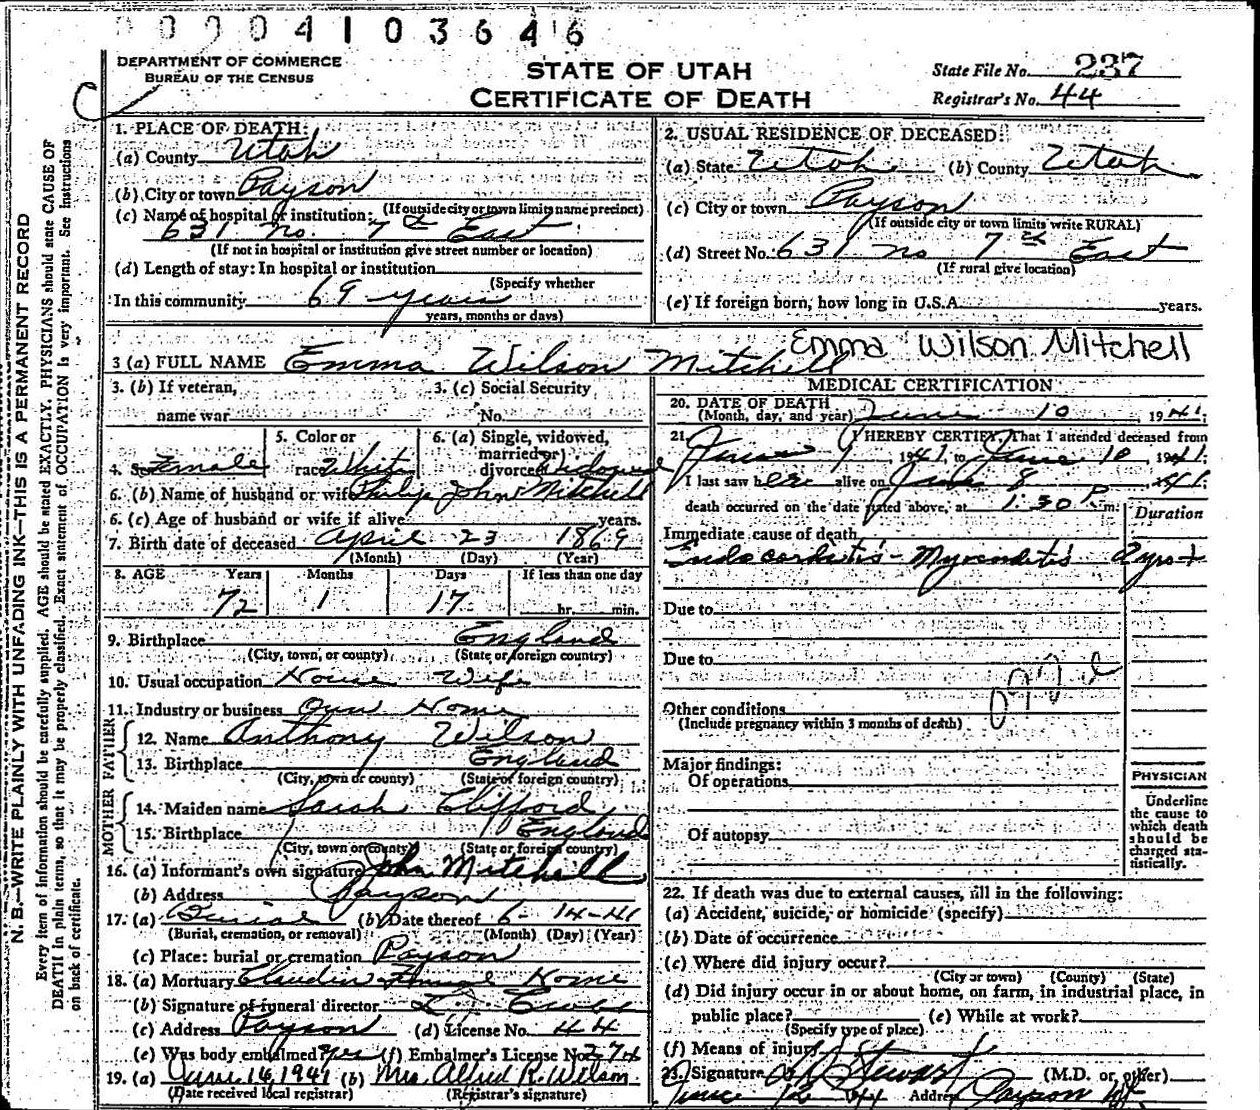 0 0 0 4 1 0 3 6 4 6
DEPARTMENT OF COMMERCE
BUREAU OF THE CENSUS
STATE OF UTAH
CERTIFICATE OF DEATH
State File No. 237
Registrar's No. 44
N. B.—WRITE PLAINLY WITH UNFADING INK—THIS IS A PERMANENT RECORD
Every item of information should be carefully supplied. AGE should be stated EXACTLY. PHYSICIANS should state CAUSE OF
DEATH in plain terms, so that it may be properly classified. Exact statement of OCCUPATION is very important. See instructions
on back of certificate.
1. PLACE OF DEATH:
(a) County Utah
(b) City or town Payson
(If outside city or town limits name precinct)
(c) Name of hospital or institution:
631 no. 7th East
(If not in hospital or institution give street number or location)
(d) Length of stay: In hospital or institution
(Specify whether
In this community 69 years
years, months or days)
2. USUAL RESIDENCE OF DECEASED:
(a) State Utah (b) County Utah
(c) City or town Payson
(If outside city or town limits write RURAL)
(d) Street No. 631 no 7th East
(If rural give location)
(e) If foreign born, how long in U.S.A. years.
3 (a) FULL NAME Emma Wilson Mitchell
Emma Wilson Mitchell
3. (b) If veteran,
name war
3. (c) Social Security
No.
4. Sex Female
5. Color or
race White
6. (a) Single, widowed,
married or
divorced Widowed
6. (b) Name of husband or wife Philip John Mitchell
6. (c) Age of husband or wife if alive years.
7. Birth date of deceased April 23 1869
(Month) (Day) (Year)
8. AGE Years Months Days If less than one day
72 1 17 hr. min.
9. Birthplace England
(City, town, or county) (State or foreign country)
10. Usual occupation House Wife
11. Industry or business Own Home
FATHER
12. Name Anthony Wilson
13. Birthplace England
(City, town or county) (State or foreign country)
MOTHER
14. Maiden name Sarah Clifford
15. Birthplace England
(City, town or county) (State or foreign country)
16. (a) Informant's own signature John Mitchell
(b) Address Payson
17. (a) Burial (b) Date thereof 6-14-41
(Burial, cremation, or removal) (Month) (Day) (Year)
(c) Place: burial or cremation Payson
18. (a) Mortuary Home
(b) Signature of funeral director
(c) Address Payson (d) License No. 44
(e) Was body embalmed? Yes (f) Embalmer's License No. 274
19. (a) June 14, 1941 (b) Mrs. Alfred R. Wilson
(Date received local registrar) (Registrar's signature)
MEDICAL CERTIFICATION
20. DATE OF DEATH
(Month, day, and year) June 10 1941
21. I HEREBY CERTIFY, That I attended deceased from
June 9, 1941, to June 10 1941;
I last saw her alive on June 8 41;
death occurred on the date stated above, at 1:30 P. m.
Duration
Immediate cause of death
Endocarditis - Myocarditis 2 yrs +
Due to
Due to
Other conditions
(Include pregnancy within 3 months of death)
Major findings:
Of operations
Of autopsy
PHYSICIAN
Underline
the cause to
which death
should be
charged sta-
tistically.
22. If death was due to external causes, fill in the following:
(a) Accident, suicide, or homicide (specify)
(b) Date of occurrence
(c) Where did injury occur?
(City or town) (County) (State)
(d) Did injury occur in or about home, on farm, in industrial place, in
public place? (e) While at work?
(Specify type of place)
(f) Means of injury
23. Signature Stewart (M.D. or other)
June 12 Address Payson Ut.